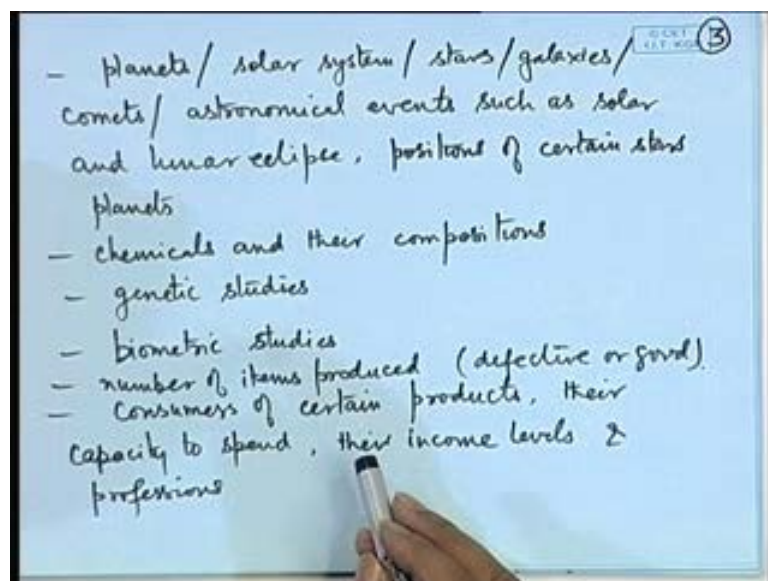 - planets / solar system / stars / galaxies /
comets / astronomical events such as solar
and lunar eclipse, positions of certain stars
planets
- chemicals and their compositions
- genetic studies
- biometric studies
- number of items produced (defective or good).
- Consumers of certain products, their
capacity to spend, their income levels &
professions
3